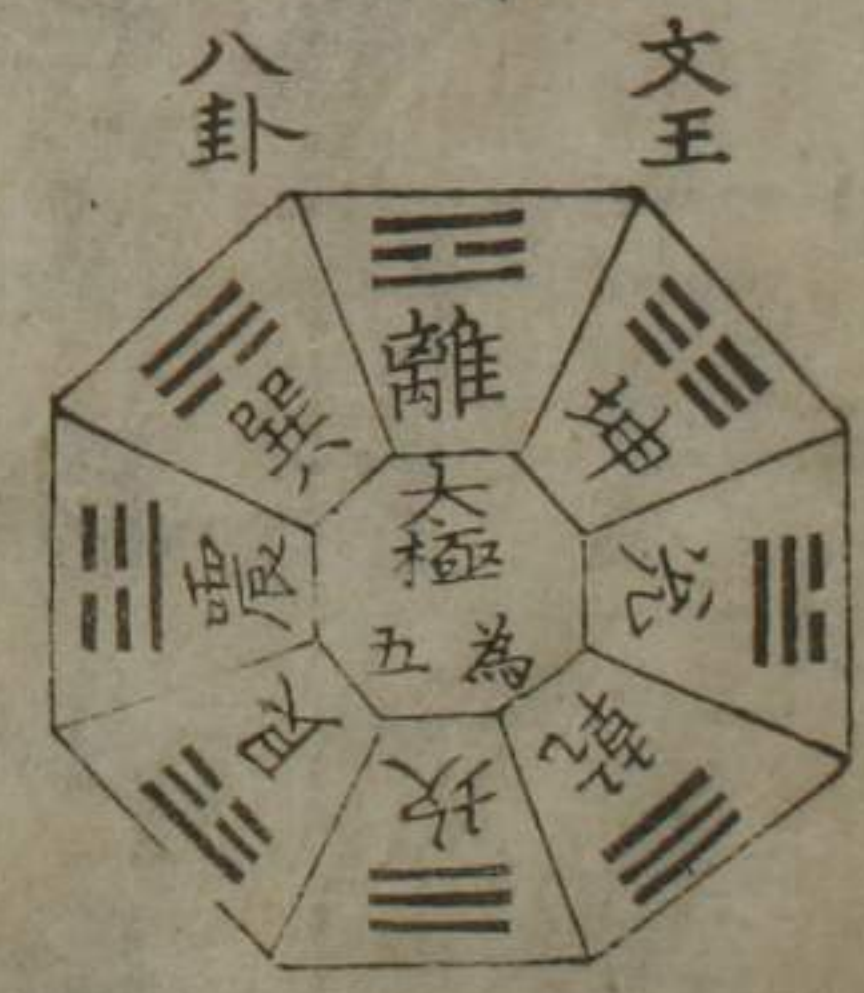 文王
八卦
離
坤
兌
乾
坎
艮
震
巽
太極
為五